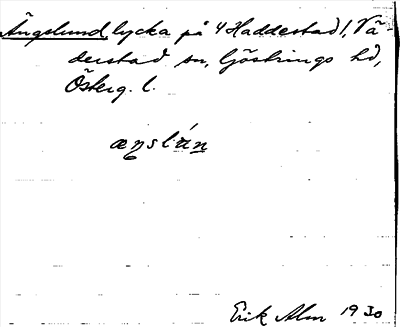 Ängslund, lycka på 4 Haddestad 1, Vä-
derstad sn, Göstrings hd,
Österg. l.
æŋslún
Erik Alm 1930